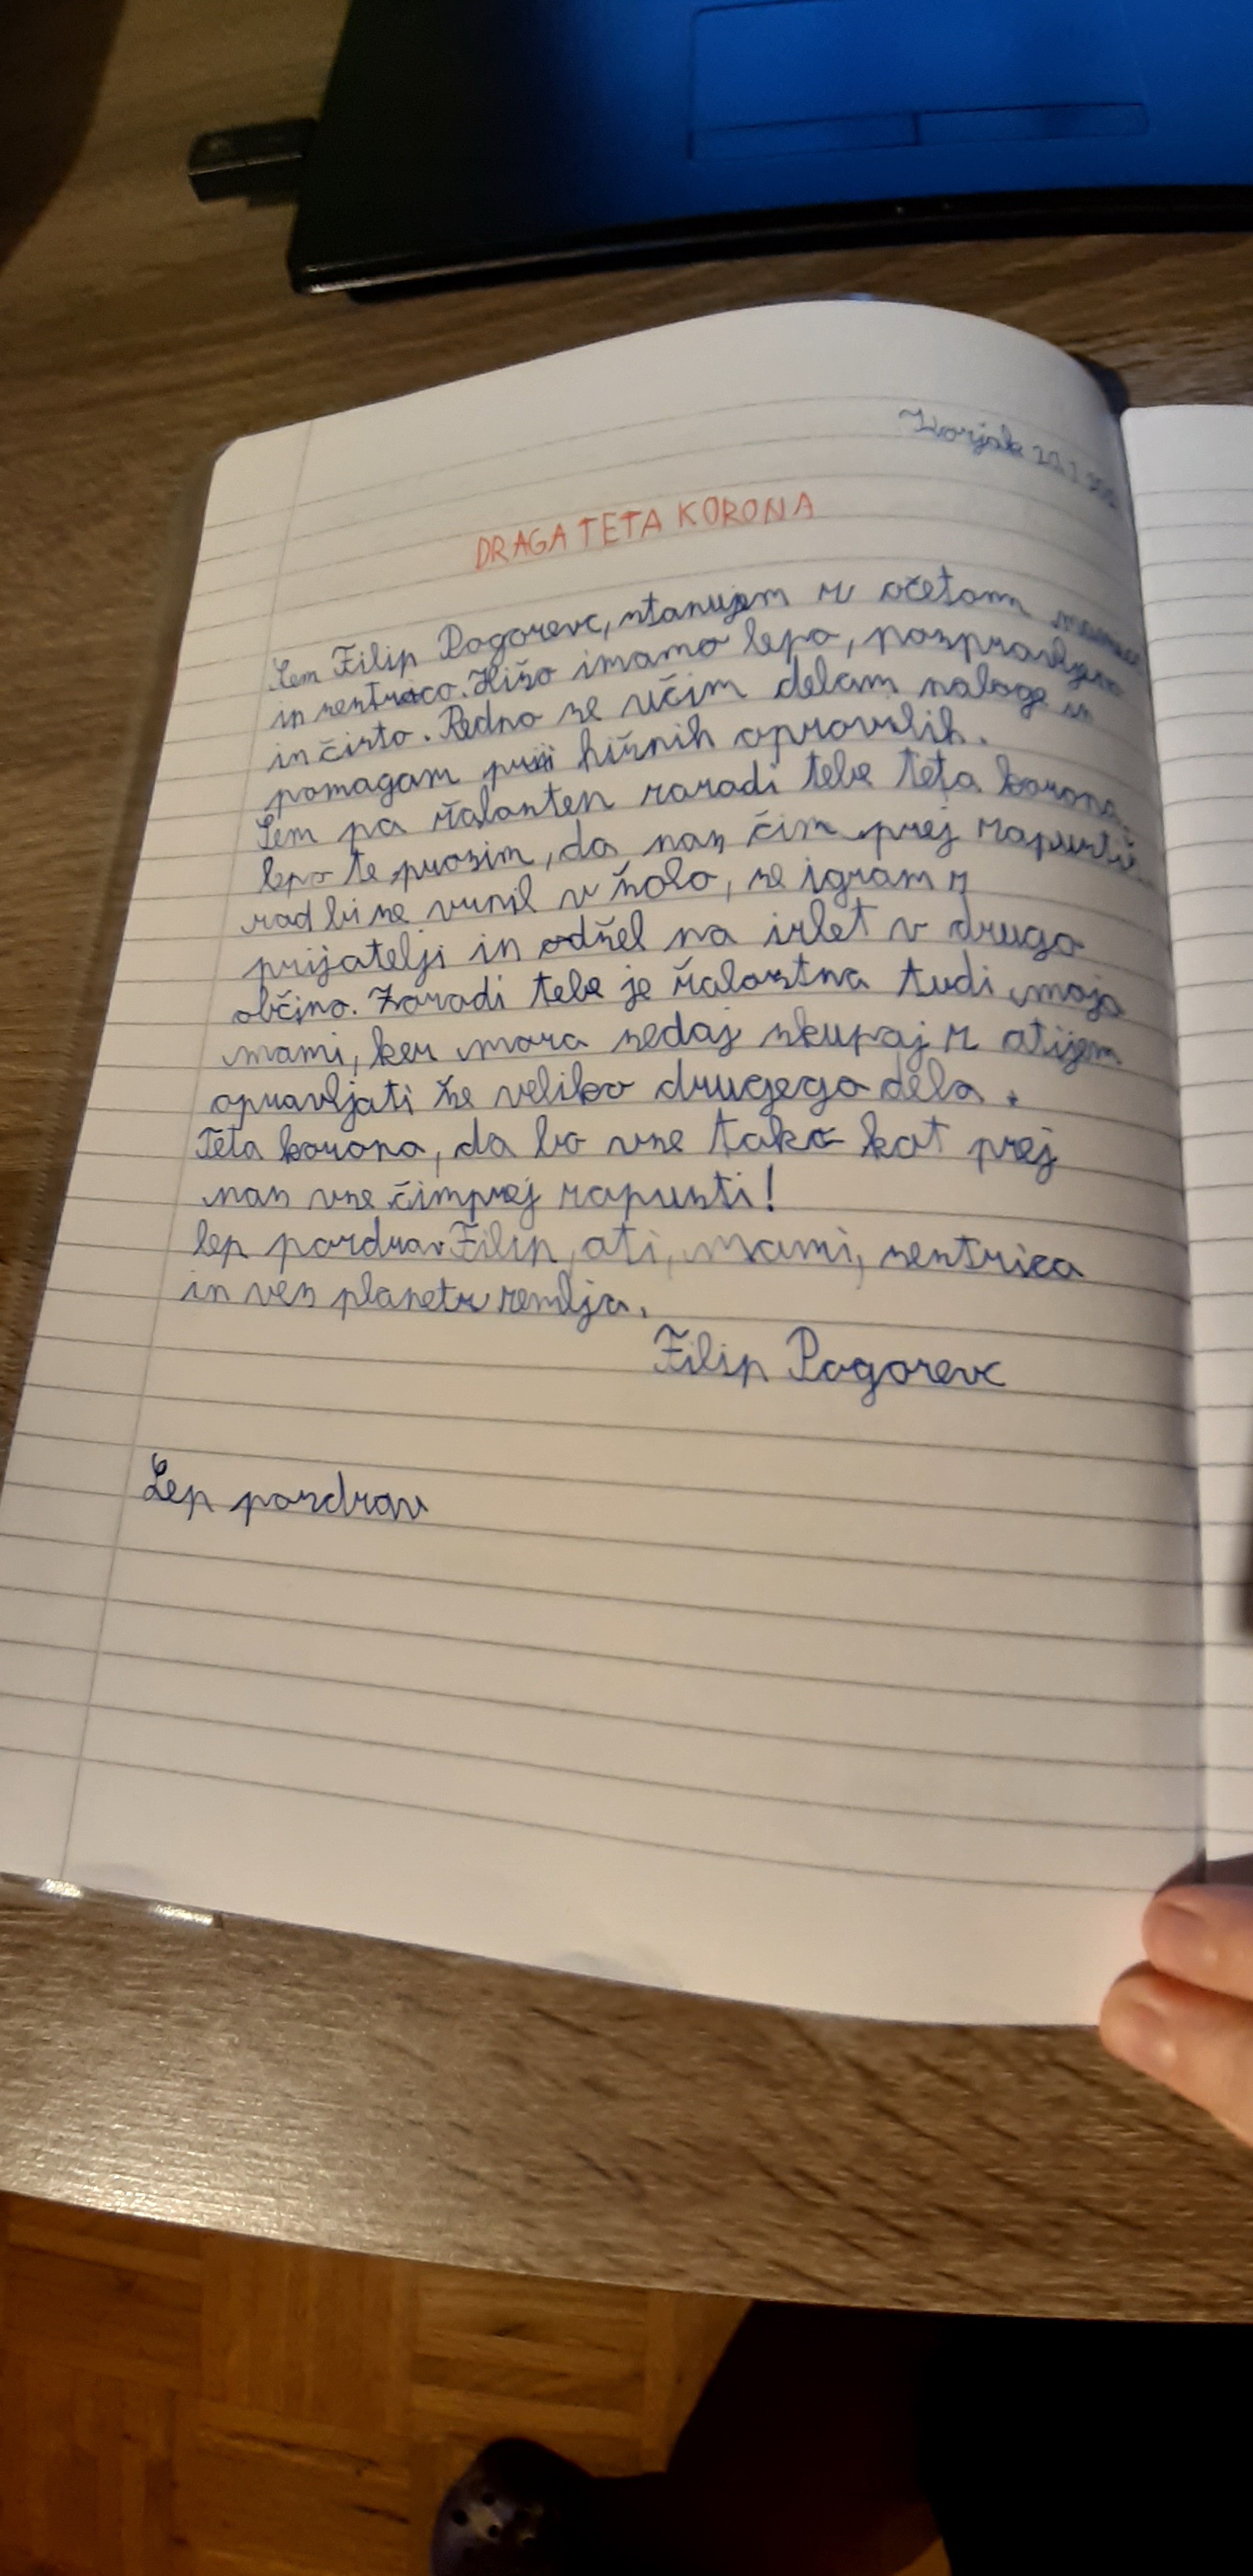 Zvorjak 22.1.
DRAGA TETA KORONA
Sem Filip Pogorevc, stanujem z očetom mamico
in sestrico. Hišo imamo lepo, pospravljeno
in čisto. Redno se učim delam naloge in
pomagam pri hišnih opravilih.
Sem pa žalosten zaradi tebe teta korona,
lepo te prosim, da nas čim prej zapustiš
rad bi se vrnil v šolo, se igram z
prijatelji in odšel na izlet v drugo
občino. Zaradi tebe je žalostna tudi moja
mami, ker mora sedaj skupaj z atijem
opravljati še veliko drugega dela.
Teta korona, da bo vse tako kot prej
nas vse čimprej zapusti!
lep pozdrav Filip, ati, mami, sestrica
in ves planetz zemlja.
Filip Pogorevc
Lep pozdrav